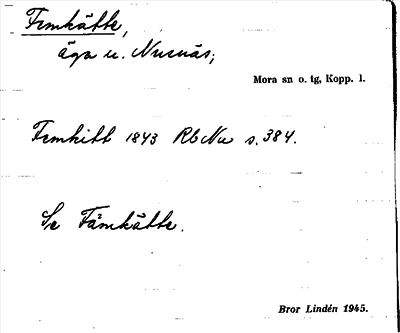 Femkätte,
äga u. Nusnäs;
Mora sn o. tg, Kopp. l.
Femkitt 1843 RbNu s. 384.
Se Fämkätte.
Bror Lindén 1945.